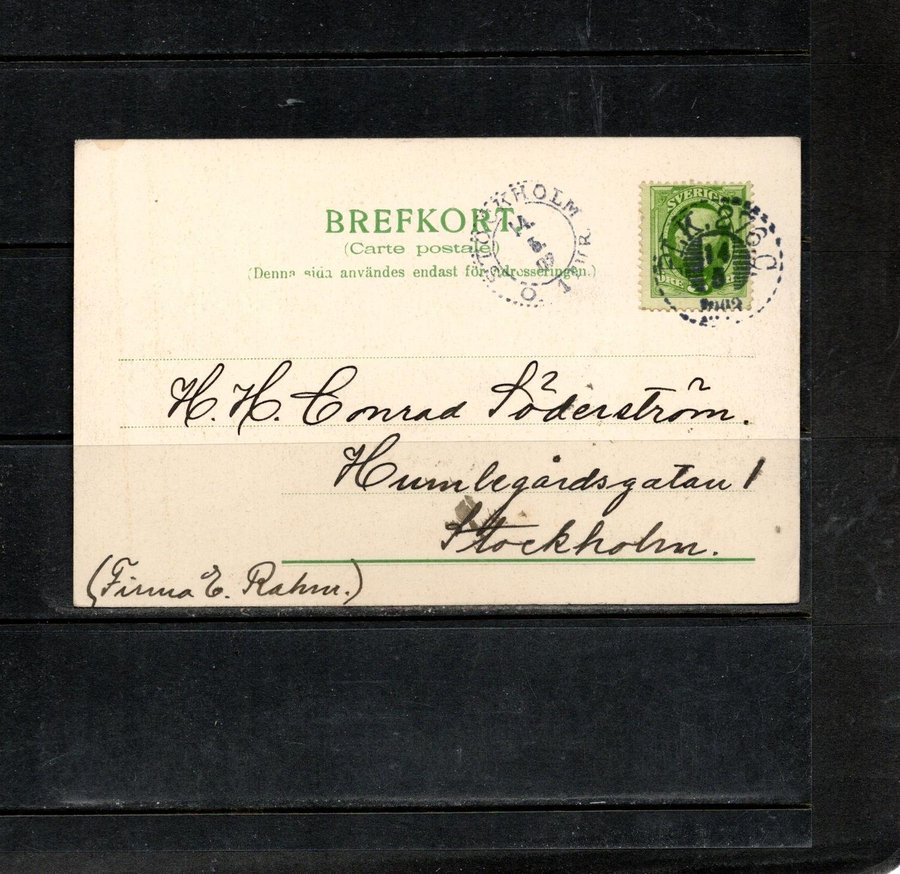 BREFKORT
(Carte postale)
(Denna sida användes endast för adresseringen.)
STOCKHOLM
Ö. 1 TUR.
SVERIGE
1902
H. H. Conrad Söderström.
Humlegårdsgatan 1
Stockholm.
(Firma E. Rahm.)